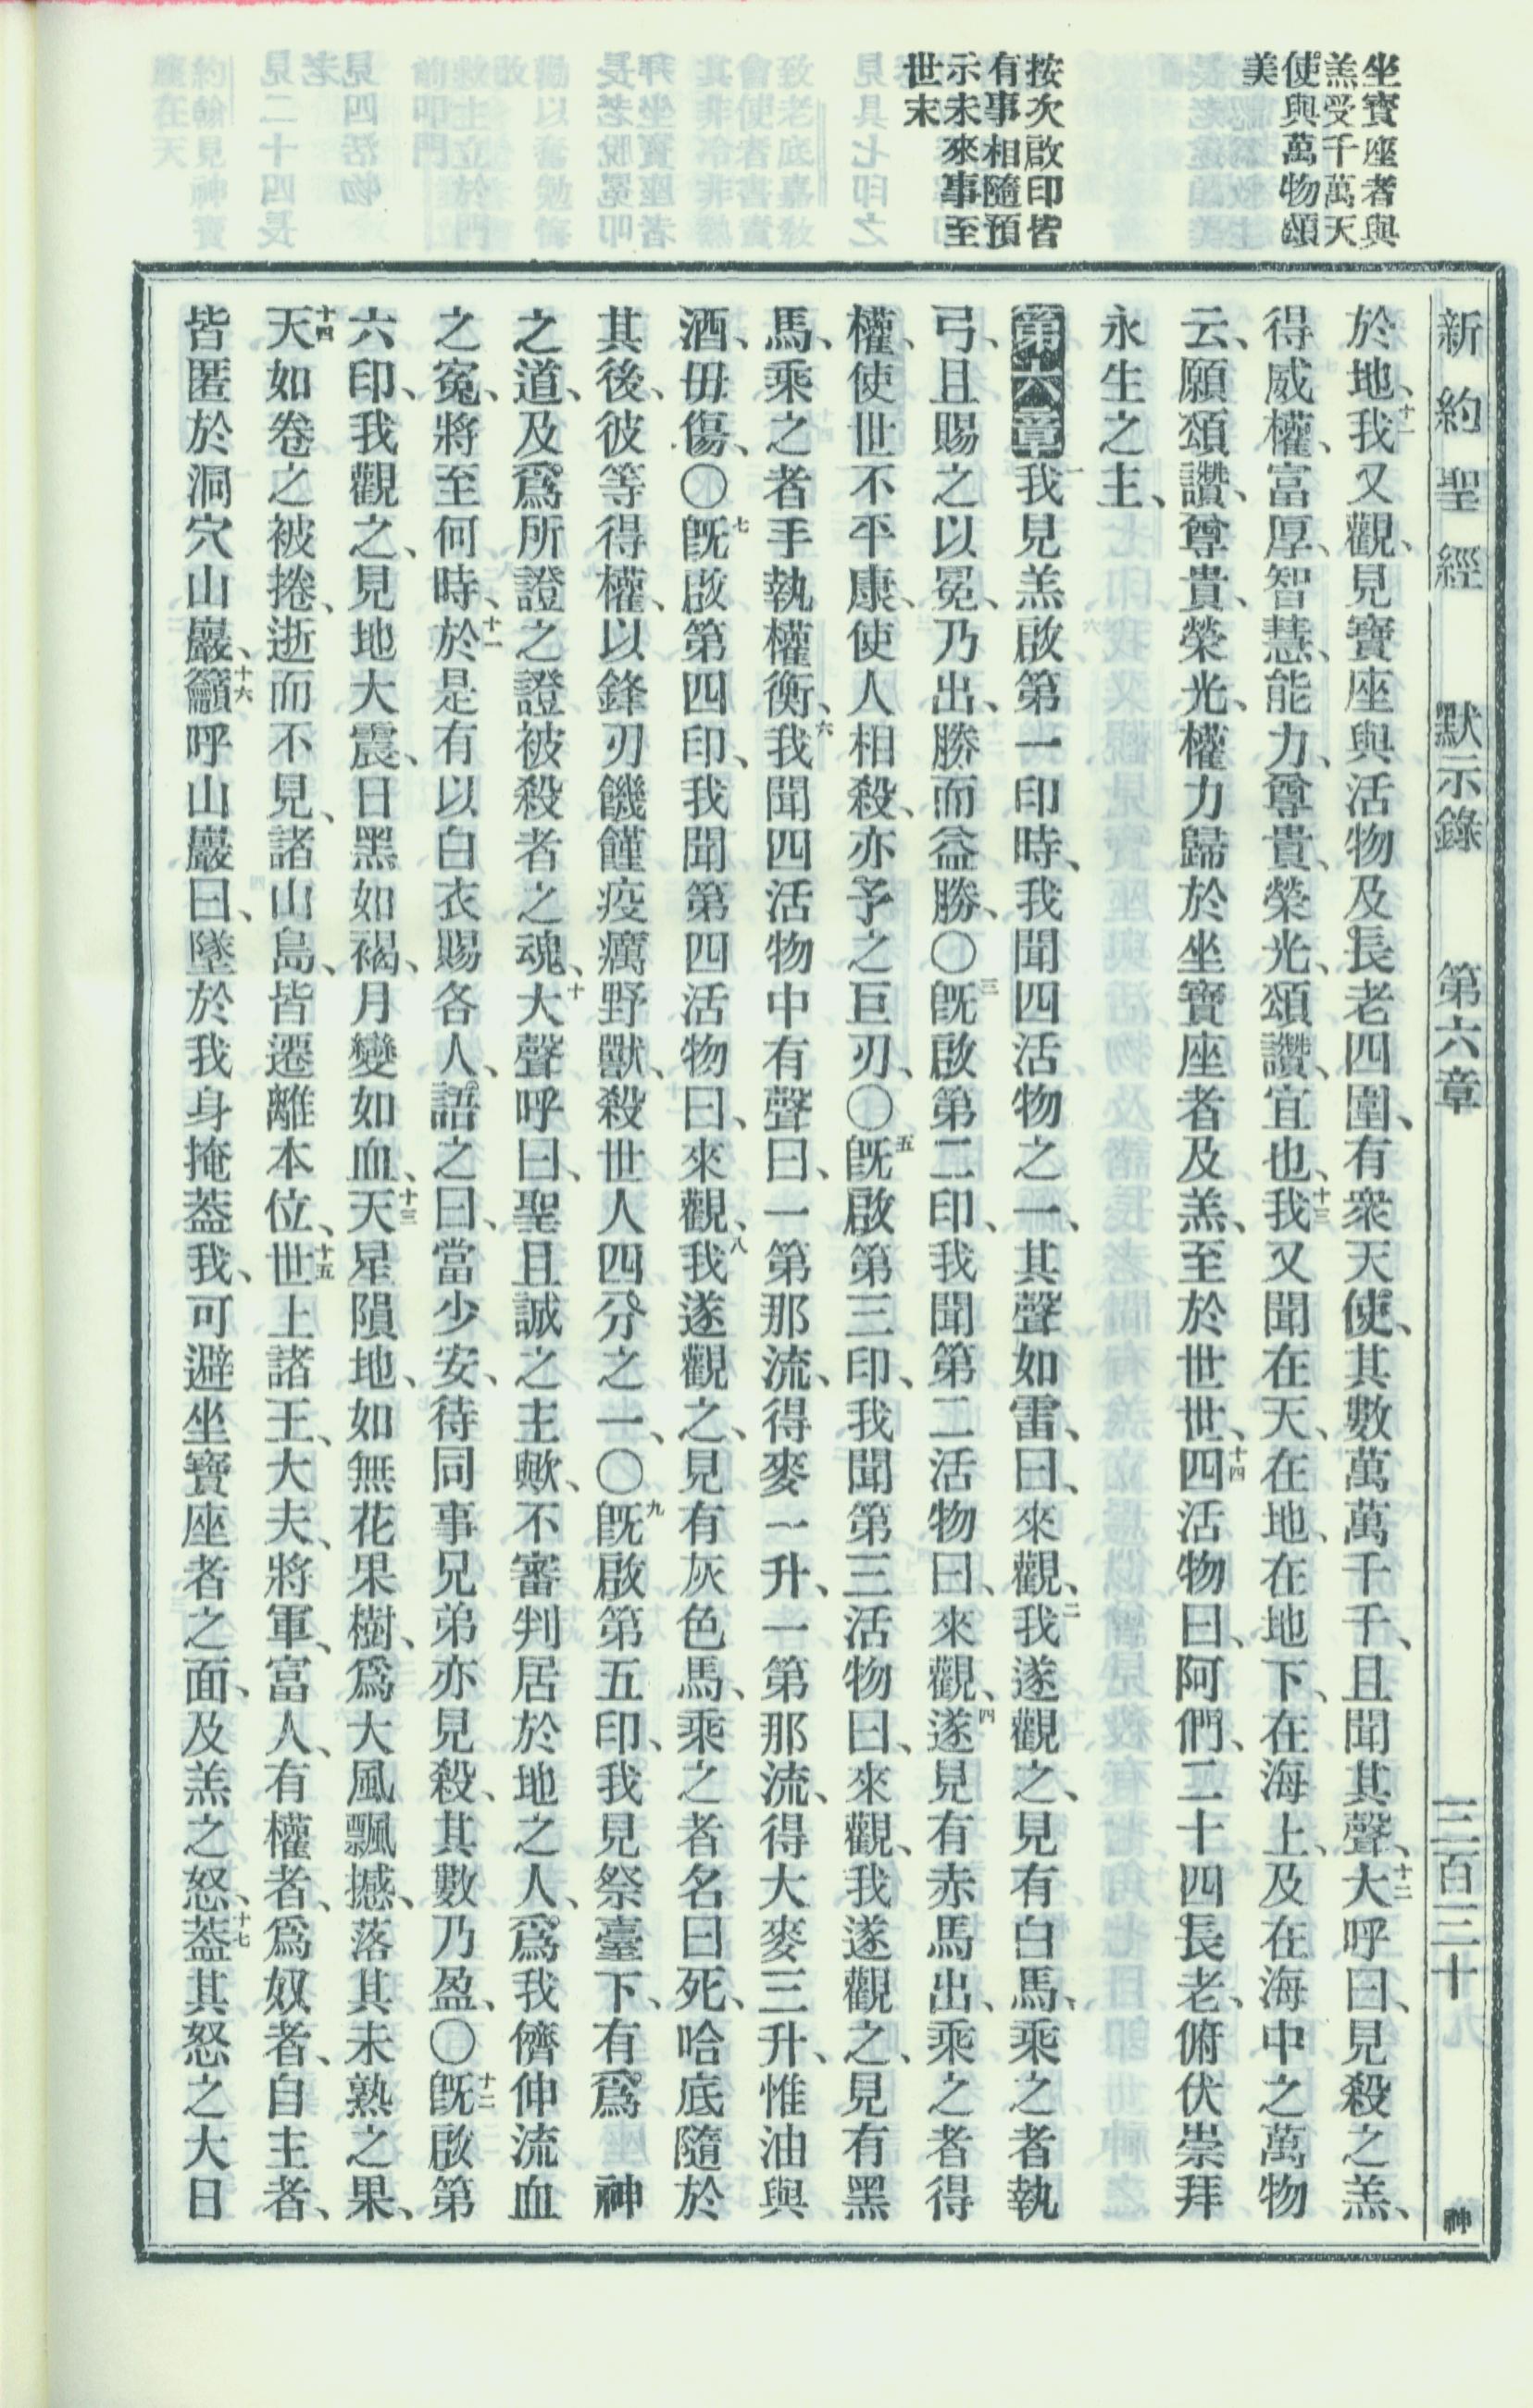 新約聖經 默示錄 第六章 三百三十 神
坐寶座者與
羔受千萬天
使與萬物頌
美
按次啟印皆
有事相隨預
示未來事至
世末
於地、十一我又觀、見寶座與活物及長老四圍、有衆天使、其數萬萬千千、且聞其聲、十二大呼曰、見殺之羔、
得威權、富厚、智慧、能力、尊貴、榮光、頌讚、宜也、十三我又聞在天、在地、在地下、在海上、及在海中之萬物
云、願頌讚、尊貴、榮光、權力歸於坐寶座者及羔、至於世世、十四四活物曰、阿們、二十四長老、俯伏崇拜
永生之主、
第六章一我見羔啟第一印時、我聞四活物之一、其聲如雷、曰、來觀、二我遂觀之、見有白馬、乘之者執
弓、且賜之以冕、乃出、勝而益勝、〇三旣啟第二印、我聞第二活物曰、來觀、四遂見有赤馬出、乘之者得
權、使世不平康、使人相殺、亦予之巨刃、〇五旣啟第三印、我聞第三活物曰、來觀、我遂觀之、見有黑
馬、乘之者手執權衡、六我聞四活物中有聲曰、一第那流、得麥一升、一第那流、得大麥三升、惟油與
酒、毋傷、〇七旣啟第四印、我聞第四活物曰、來觀、八我遂觀之、見有灰色馬、乘之者名曰死、哈底隨於
其後、彼等得權、以鋒刃饑饉疫癘野獸、殺世人四分之一、〇九旣啟第五印、我見祭臺下、有爲 神
之道、及爲所證之證被殺者之魂、十大聲呼曰、聖且誠之主歟、不審判居於地之人、爲我儕伸流血
之寃、將至何時、十一於是有以白衣賜各人、語之曰、當少安、待同事兄弟亦見殺、其數乃盈、〇十二旣啟第
六印、我觀之、見地大震、日黑如褐、月變如血、十三天星隕地、如無花果樹、爲大風飄撼、落其未熟之果、
十四天如卷之被捲、逝而不見、諸山島、皆遷離本位、十五世上諸王、大夫、將軍、富人、有權者、爲奴者、自主者、
皆匿於洞穴山巖、十六籲呼山巖曰、墜於我身掩葢我、可避坐寶座者之面、及羔之怒、十七葢其怒之大日